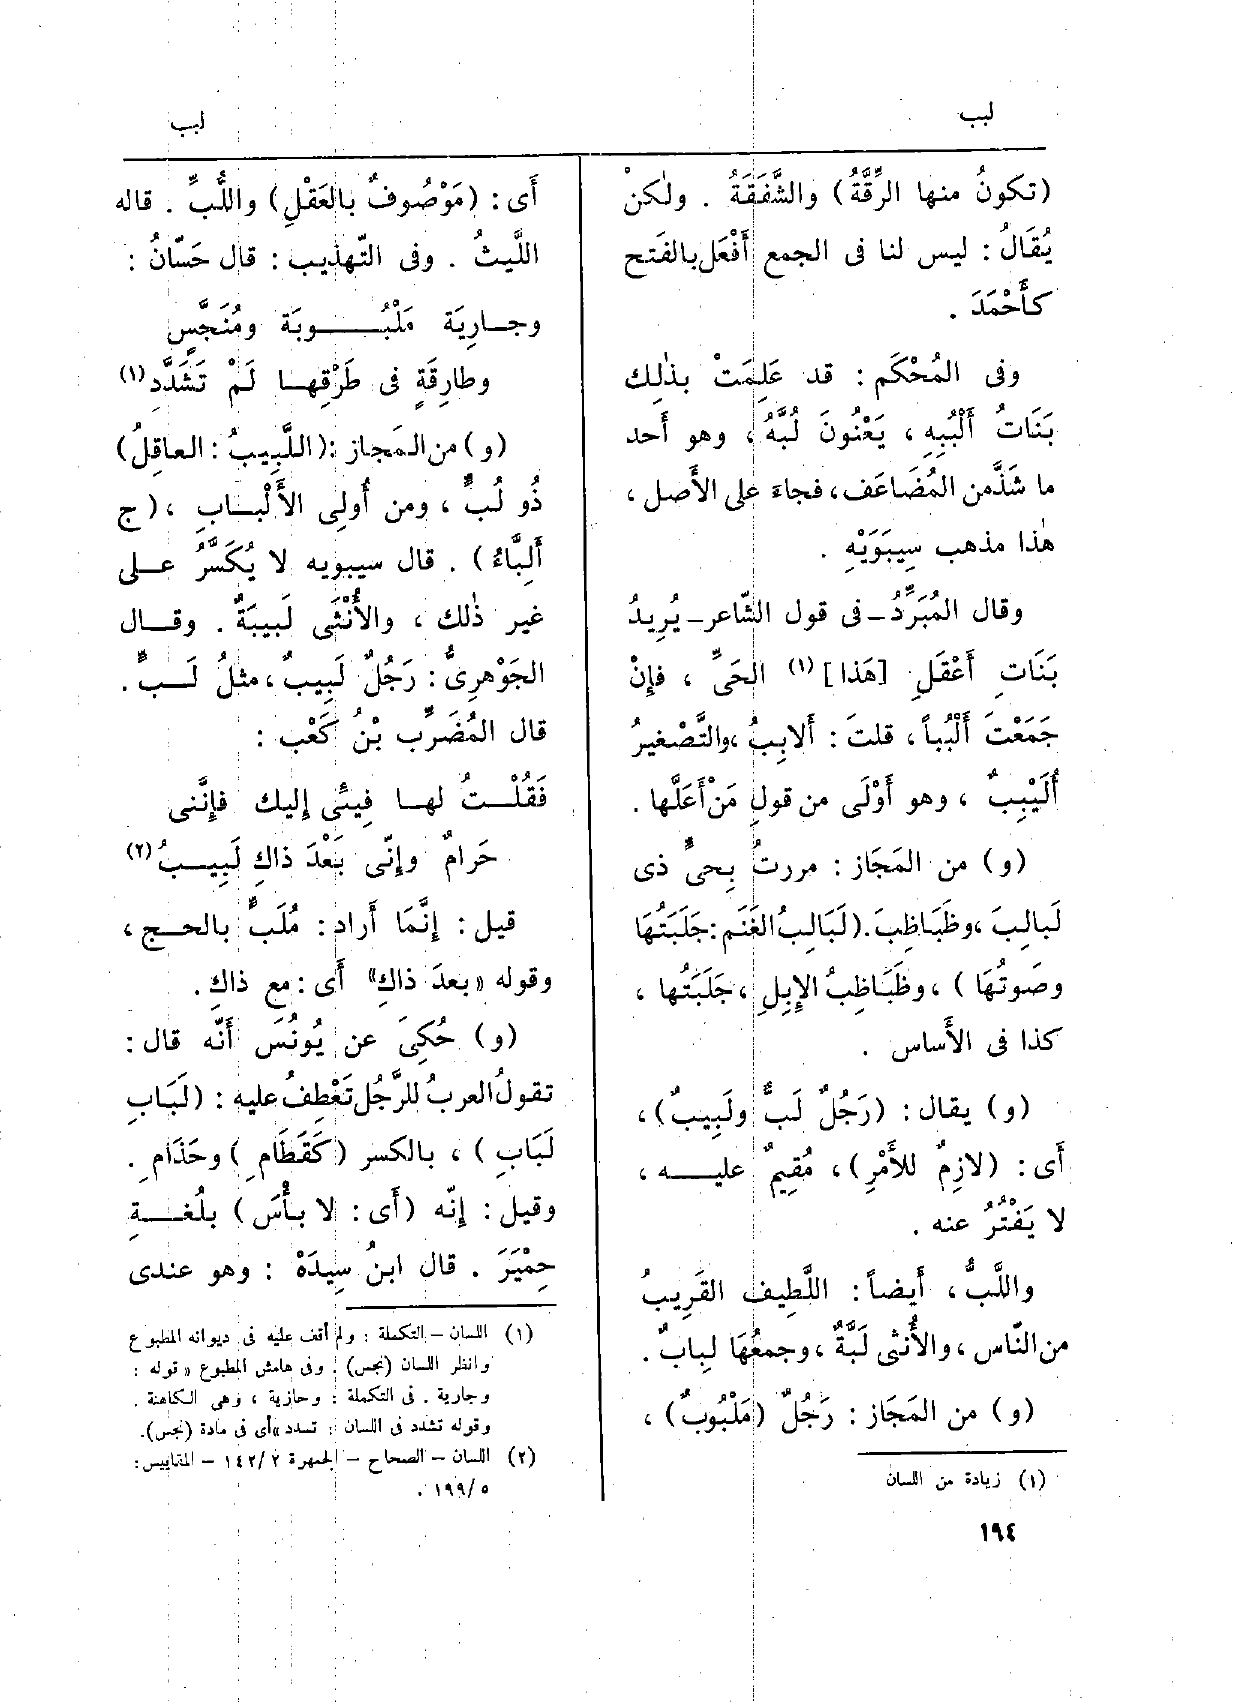 لبب
لبب
(تكونُ منها الرِّقَّةُ) والشَّفَقَةُ . ولٰكنْ
يُقَالُ : ليس لنا فى الجمع أَفْعَل بالفَتح
كأَحْمَدَ .
وفى المُحْكَم : قد عَلِمَتْ بذٰلِك
بَنَاتُ أَلْبُبِهِ ، يَعْنُونَ لُبَّهُ ، وهو أَحد
ما شَذَّ من المُضَاعَف ، فجاءَ على الأَصل ،
هٰذا مذهب سِيبَوَيْهِ .
وقال المُبَرِّدُ ــ فى قول الشّاعر ــ يُرِيدُ
بَنَاتِ أَعْقَلِ [هَذا] (١) الحَىِّ ، فإِنْ
جَمَعْتَ أَلْبُباً ، قلتَ : أَلابِبُ ، والتَّصْغيرُ
أُلَيْبِبٌ ، وهو أَوْلَى من قولِ مَنْ أَعَلَّها .
(و) من المَجَاز : مررتُ بِحىٍّ ذى
لَبالِبَ ، وظَبَاظِبَ . (لَبَالِبُ الغَنَم : جَلَبَتُهَا
وصَوتُهَا ) ، وظَبَاظِبُ الإِبِلِ ، جَلَبَتُها ،
كذا فى الأَساس .
(و) يقال : (رَجُلٌ لَبٌّ ولَبِيبٌ) ،
أَى : (لازِمٌ للأَمْرِ) ، مُقِيمٌ عليــه ،
لا يَفْتُرُ عنه .
واللَّبُّ ، أَيضاً : اللَّطِيف القَرِيبُ
من النّاس ، والأُنثى لَبَّةٌ ، وجمعُهَا لِبابٌ .
(و) من المَجَاز : رَجُلٌ (مَلْبُوبٌ) ،
(١) زيادة من اللسان
١٩٤
أَى : (مَوْصُوفٌ بالعَقْلِ) واللُّبِّ . قاله
اللَّيثُ . وفى التّهذيب : قال حَسّانُ :
وجــارِيَة مَلْبُـــوبَة ومُنَجَّسٍ
وطارِقَةٍ فى طَرْقِهــا لَمْ تَشَدَّدِ (١)
(و) من المَجاز : (اللَّبِيبُ : العاقِلُ)
ذُو لُبٍّ ، ومن أُولِى الأَلْبــابِ ، (ج
أَلِبَّاءُ ) . قال سيبويه لا يُكَسَّرُ علــى
غير ذٰلك ، والأُنْثَى لَبيبَةٌ . وقــال
الجَوْهرِىُّ : رَجُلٌ لَبِيبٌ ، مثلُ لَــبٍّ .
قال المُضَرِّب بْنُ كَعْب :
فَقُلْــتُ لهــا فِيئِى إِليك فإِنَّنى
حَرامٌ وإِنِّى بَعْدَ ذاكِ لَبِيــبُ (٢)
قيل : إِنَّمَا أَراد : مُلَبٌّ بالحــج ،
وقوله « بعدَ ذاكِ» أَى : مع ذاكِ .
(و) حُكِىَ عن يُونُسَ أَنَّه قال :
تقولُ العربُ للرَّجُل تَعْطِفُ عليه : (لَبَابِ
لَبَابِ ) ، بالكسر (كَقَطَامِ ) وحَذَامِ .
وقيل : إِنّه (أَى : لا بــأْسَ ) بلُغــةِ
حِمْيَرَ . قال ابنُ سِيدَهْ : وهو عندى
(١) اللسان – التكملة : ولم أقف عليه فى ديوانه المطبوع
وانظر اللسان (نجس) . وفى هامش المطبوع « قوله :
وجارية . فى التكملة : وحازية ، وهى الكاهنة .
وقوله تشدد فى اللسان : تسدد » أى فى مادة (نجس).
(٢) اللسان – الصحاح – الجمهرة ١٤٢/٢ – المقاييس :
١٩٩/٥ .